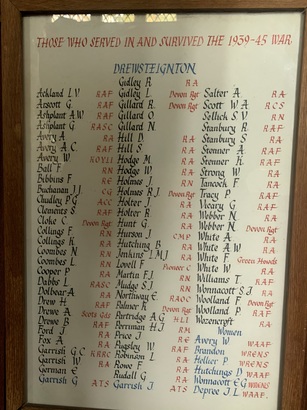 THOSE WHO SERVED IN AND SURVIVED THE 1939-45 WAR.
DREWSTEIGNTON
Ackland L.V RAF
Arscott G. RAF
Ashplant A.W RAF
Ashplant G. RASC
Avery A RA
Avery A.C. RAF
Avery W KOYLI
Ball F RN
Bibbins F RE
Buchanan J.J
Chudley P.G ACC
Clements S RAF
Cloke C Devon Rgt
Collings F RN
Collings K RA
Coombes N RN
Coombes L RN
Cooper P RA
Dabbs J RASC
Dolbear A RA
Drew H RAF
Drewe A Scots Gds
Drewe B RAF
Ford J RA
Fox A RA
Garrish G.C RRRC
Garrish W RA
German E RAF
Garrish G ATS
Gidley R RA
Gidley L Devon Rgt
Gillard R Devon Rgt
Gillard O
Gillard R
Hill B RA
Hill S RA
Hodge M RA
Hodge W RA
Holmes J RN
Holmes R.J Devon Rgt
Holter J RA
Holter R RA
Hunt G RA
Hurson J CMP
Hutching B RA
Jenkins L.M.J RA
Lovell F Pioneer C
Martin F.J RN
Mudge S.J RN
Northway E RAOC
Palmer R Devon Rgt
Partridge A.G HLI
Perriman H.J RM
Pugsley W RAF
Robinson L RAF
Rowe F RAF
Rudall G RAF
Garrish J ATS
Salter A RA
Scott W A RCS
Sellick S.V RN
Stanbury R RAF
Stanbury S RA
Stenner A RAF
Stenner R RAF
Strong W RA
Tancock F RA
Tracey P RAF
Vicary G RAF
Webber N RA
Webber N Devon Rgt
White A RA
White A W RA
White F Green Howds
White W RA
Williams T RAF
Wonnacott S.J RA
Woolland P Devon Rgt
Woolland RA
Wozencroft RA
Women
Avery W WAAF
Brandon WRENS
Hellier P WRENS
Hutchings D WAAF
Wonnacott E.G WRENS
Deproe J.L WAAF